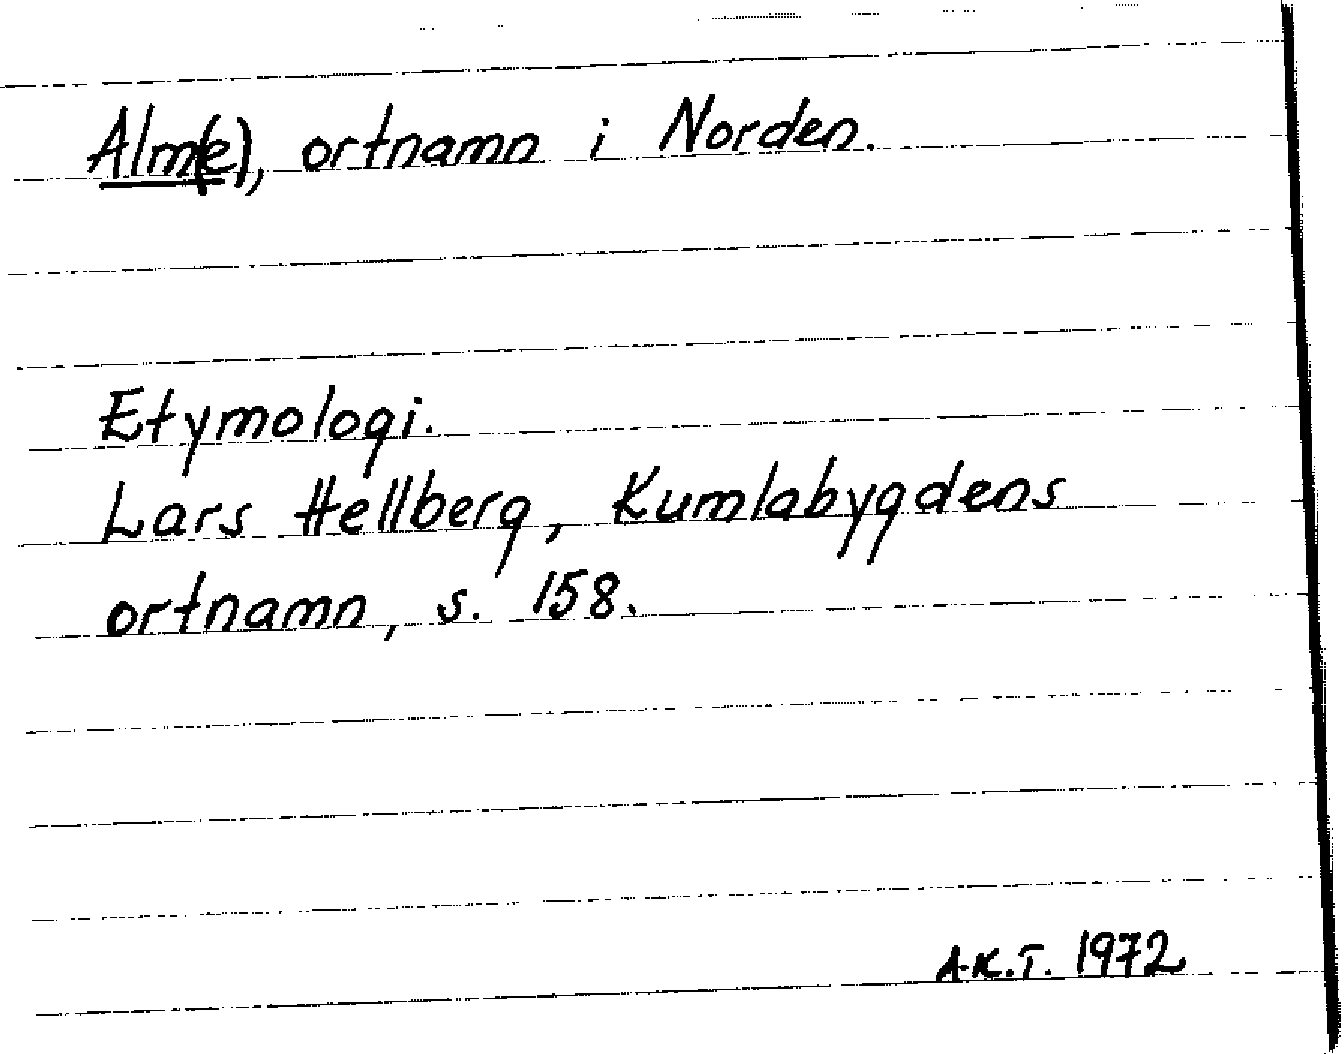 Alm(e), ortnamn i Norden.
Etymologi.
Lars Hellberg, Kumlabygdens
ortnamn, s. 158.
A.K.T. 1972